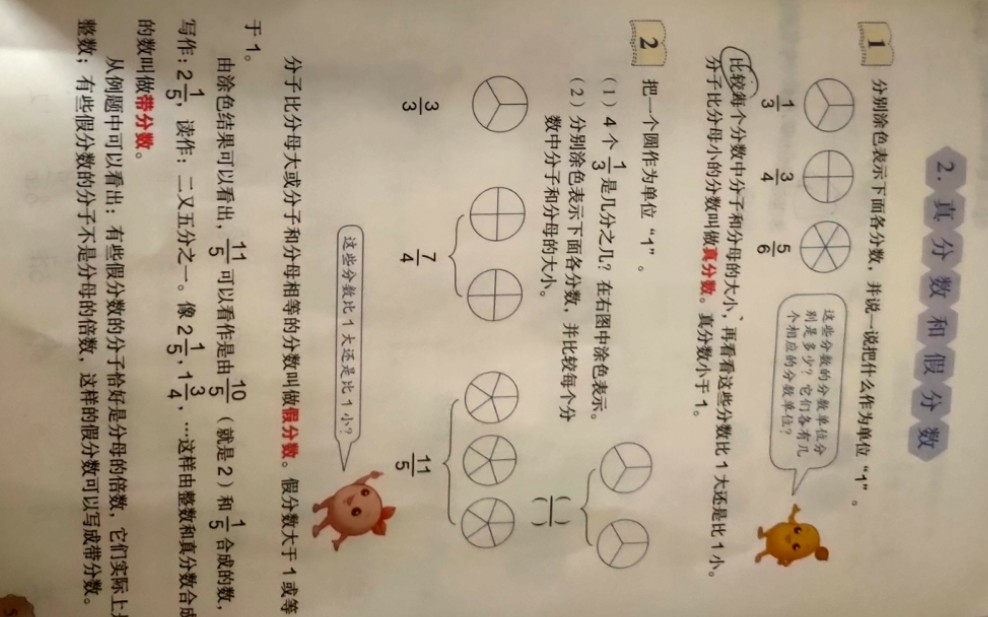 2. 真分数和假分数
1 分别涂色表示下面各分数，并说一说把什么作为单位“1”。
这些分数的分数单位分
别是多少？它们各有几
个相应的分数单位？
1/3 3/4 5/6
比较每个分数中分子和分母的大小，再看看这些分数比 1 大还是比 1 小。
分子比分母小的分数叫做真分数。真分数小于 1。
2 把一个圆作为单位“1”。
（1）4 个 1/3 是几分之几？在右图中涂色表示。
( )/( )
（2）分别涂色表示下面各分数，并比较每个分
数中分子和分母的大小。
3/3 7/4 11/5
这些分数比 1 大还是比 1 小？
分子比分母大或分子和分母相等的分数叫做假分数。假分数大于 1 或等
于 1。
由涂色结果可以看出，11/5 可以看作是由 10/5（就是 2）和 1/5 合成的数，
写作：2 1/5，读作：二又五分之一。像 2 1/5，1 3/4，…这样由整数和真分数合成
的数叫做带分数。
从例题中可以看出：有些假分数的分子恰好是分母的倍数，它们实际上
整数；有些假分数的分子不是分母的倍数，这样的假分数可以写成带分数。